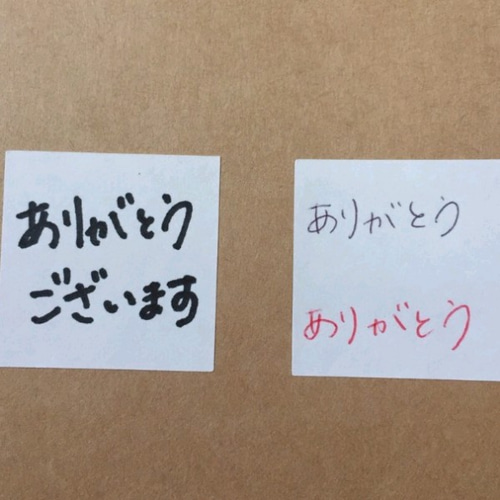 ありがとう
ございます
ありがとう
ありがとう